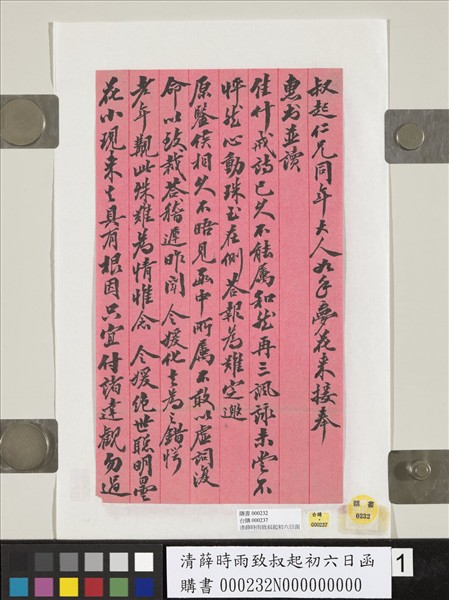 叔起仁兄同年大人如手夢花来接奉
惠書並讀
佳什戒詩已久不能属和然再三諷詠未嘗不
怦然心動珠玉在側答報為難定邀
原鑒侯相久不晤見函中所属不敢以虛詞復
命以致裁答稽遲昨聞 令媛化去為之錯愕
老年覯此殊難為情惟念 令媛絕世聰明曇
花小現来去具有根因只宜付諸達觀勿過
購書 000232
台購 000237
清薛時雨致叔起初六日函
台購
000237
購書
0232
清薛時雨致叔起初六日函
購書 000232N000000000
1